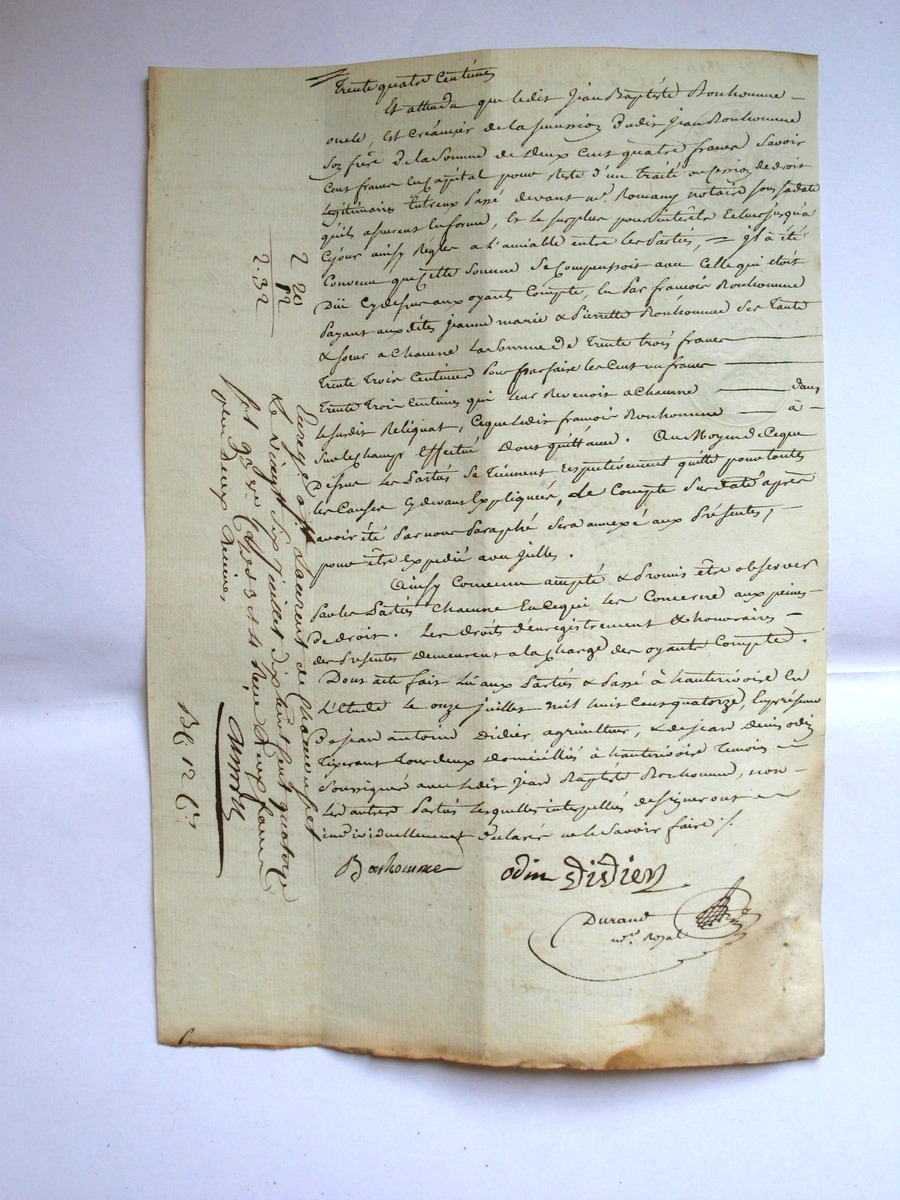 Trente quatre Centimes
Et attendu que ledit Jean Baptiste Bonhomme
oncle, est Créancier de la succession dudit Jean Bonhomme
son frère de la Somme de deux Cent quatre francs Savoir
Cent francs en Capital pour reste d'un traité ou cession de droit
légitimaire Entreux Passé devant me. Romany notaire sous sa date
qu'ils assurent en forme, Et le surplus pour intérêts Echus jusqu'a
Cejour ainsy Réglés a l'amiable entre les Parties, il a été
Convenu que Cette Somme se Compensoit avec Celle qui étoit
Düe Cydessus aux oyants Compte, En Par françois Bonhomme
Payant auxdites Jeanne marie & Pierrette Bonhomme ses tante
& soeur a Chacune La Somme De Trente trois francs
Trente Trois Centimes Pour parfaire les Cent un francs
Trente Trois Centimes qui leur Revenoit a Chacune dans
le susdit Reliquat, Ce que ledit françois Bonhomme a
Sur le Champ Effectué Dont quittance. Au Moyen de Ce que
Dessus les Parties se Tiennent respectivement quitte pour toutes
les Causes Cydevant Expliquées, Le Compte Susdaté après
avoir été Par nous Paraphé Sera annexé aux Présentes,
pour être Expédié avec Icelles.
Ainsy Convenu accepté & Promis être observer
Par les Parties Chacune En Cequi les Concerne aux peines
De droit. Les droits d'enregistrement & honoraires
des Présentes demeurent a la charge des oyants Compte.
Dont acte fait Lu aux Parties & Passé à hauterivoire En
L'étude Le onze juillet mil huit Cent quatorze, En présence
De jean antoine Didier, agriculteur, & de jean denis odin
Tixerant tous deux domiciliés à hauterivoire Temoins
Soussignés avec ledit jean Baptiste Bonhomme, non
Les autres Parties Lesquelles interpellées de signer ont
individuellement déclaré ne le Savoir faire /.
Bonhomme
odin Didier
Durand
nre. Royal
2 20
22
2.32
Enregé. à St Laurent de Chamousset
Le Vingt Six juillet dix huit Cent quatorze
Reçu Deux francs
vingt Deux Centimes